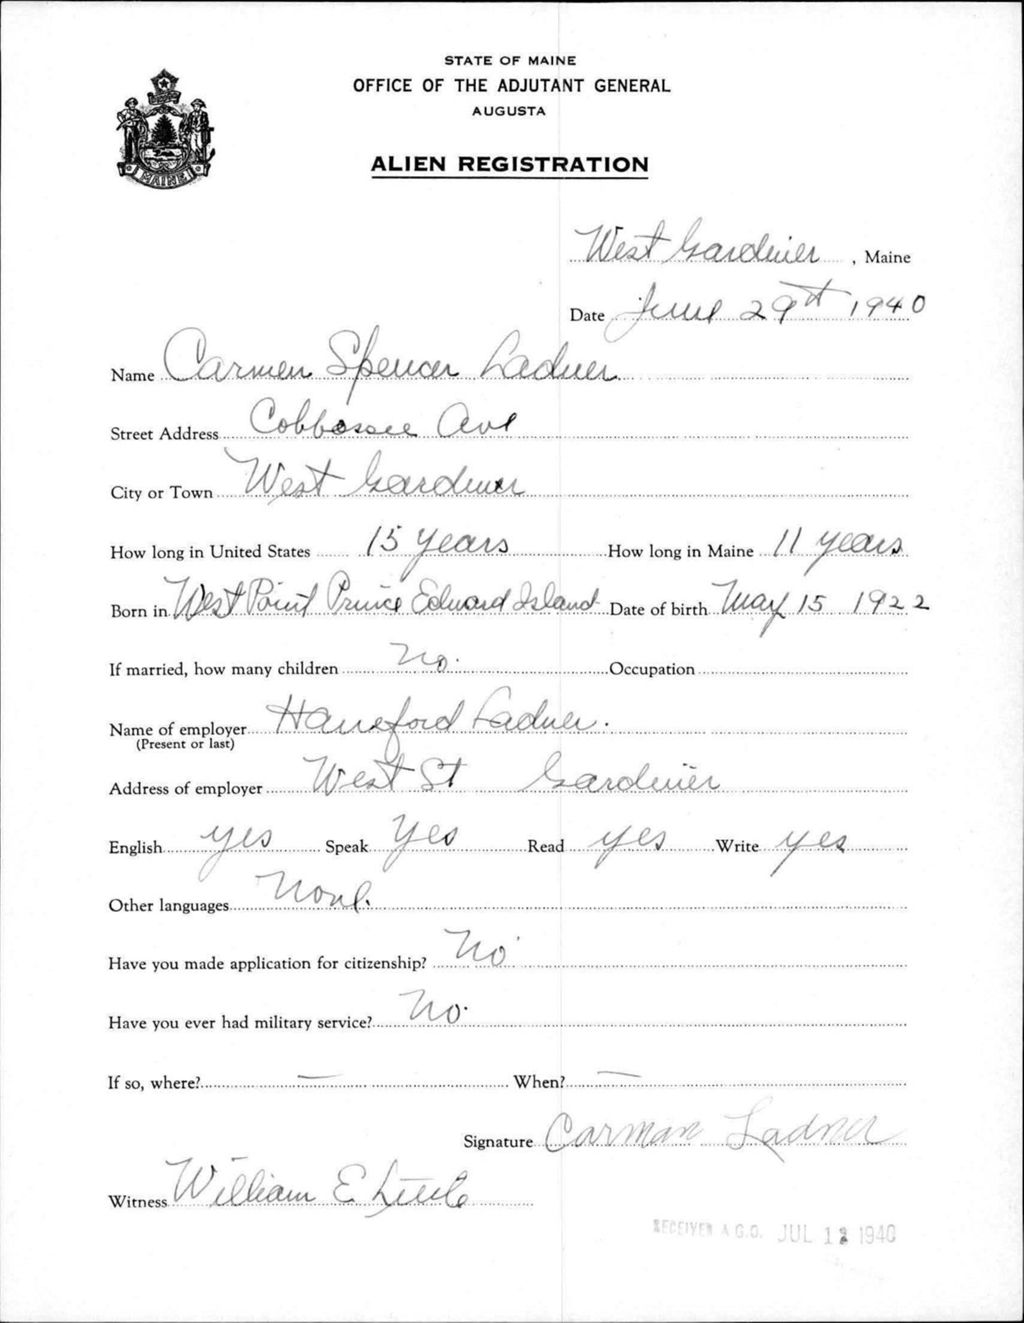 STATE OF MAINE
OFFICE OF THE ADJUTANT GENERAL
AUGUSTA
ALIEN REGISTRATION
MAINE
West Gardiner, Maine
Date June 29th 1940
Name Carmen Spencer Ladner
Street Address Cobbossee Ave
City or Town West Gardiner
How long in United States 15 years How long in Maine 11 years
Born in West Point Prince Edward Island Date of birth May 15 1922
If married, how many children No. Occupation
Name of employer Hansford Ladner.
(Present or last)
Address of employer West St Gardiner
English yes Speak Yes Read yes Write yes
Other languages None.
Have you made application for citizenship? No
Have you ever had military service? No.
If so, where? — When? —
Signature Carman Ladner
Witness William E
RECEIVED A.G.O. JUL 1940